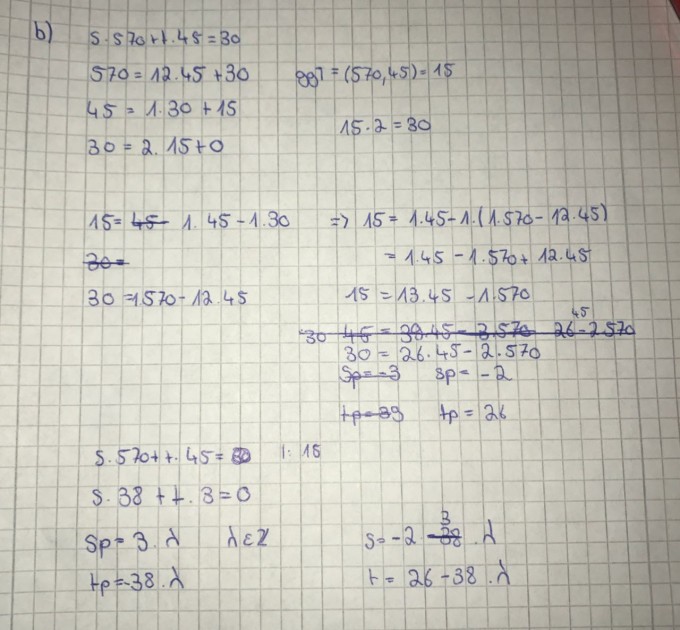 b) s·570+t·45=30
570=12·45+30 ggT=(570,45)=15
45=1·30+15
15·2=30
30=2·15+0
15=45- 1·45-1·30 => 15=1·45-1·(1·570-12·45)
30=
=1·45-1·570+12·45
30=1·570-12·45 15=13·45-1·570
45
30 45=39·45-3·570 26-2·570
30=26·45-2·570
Sp=-3 sp=-2
tp=39 tp=26
s·570+t·45= |:15
s·38+t·3=0
3
Sp=3·λ λ∈Z s=-2 38·λ
tp=-38·λ t=26-38·λ